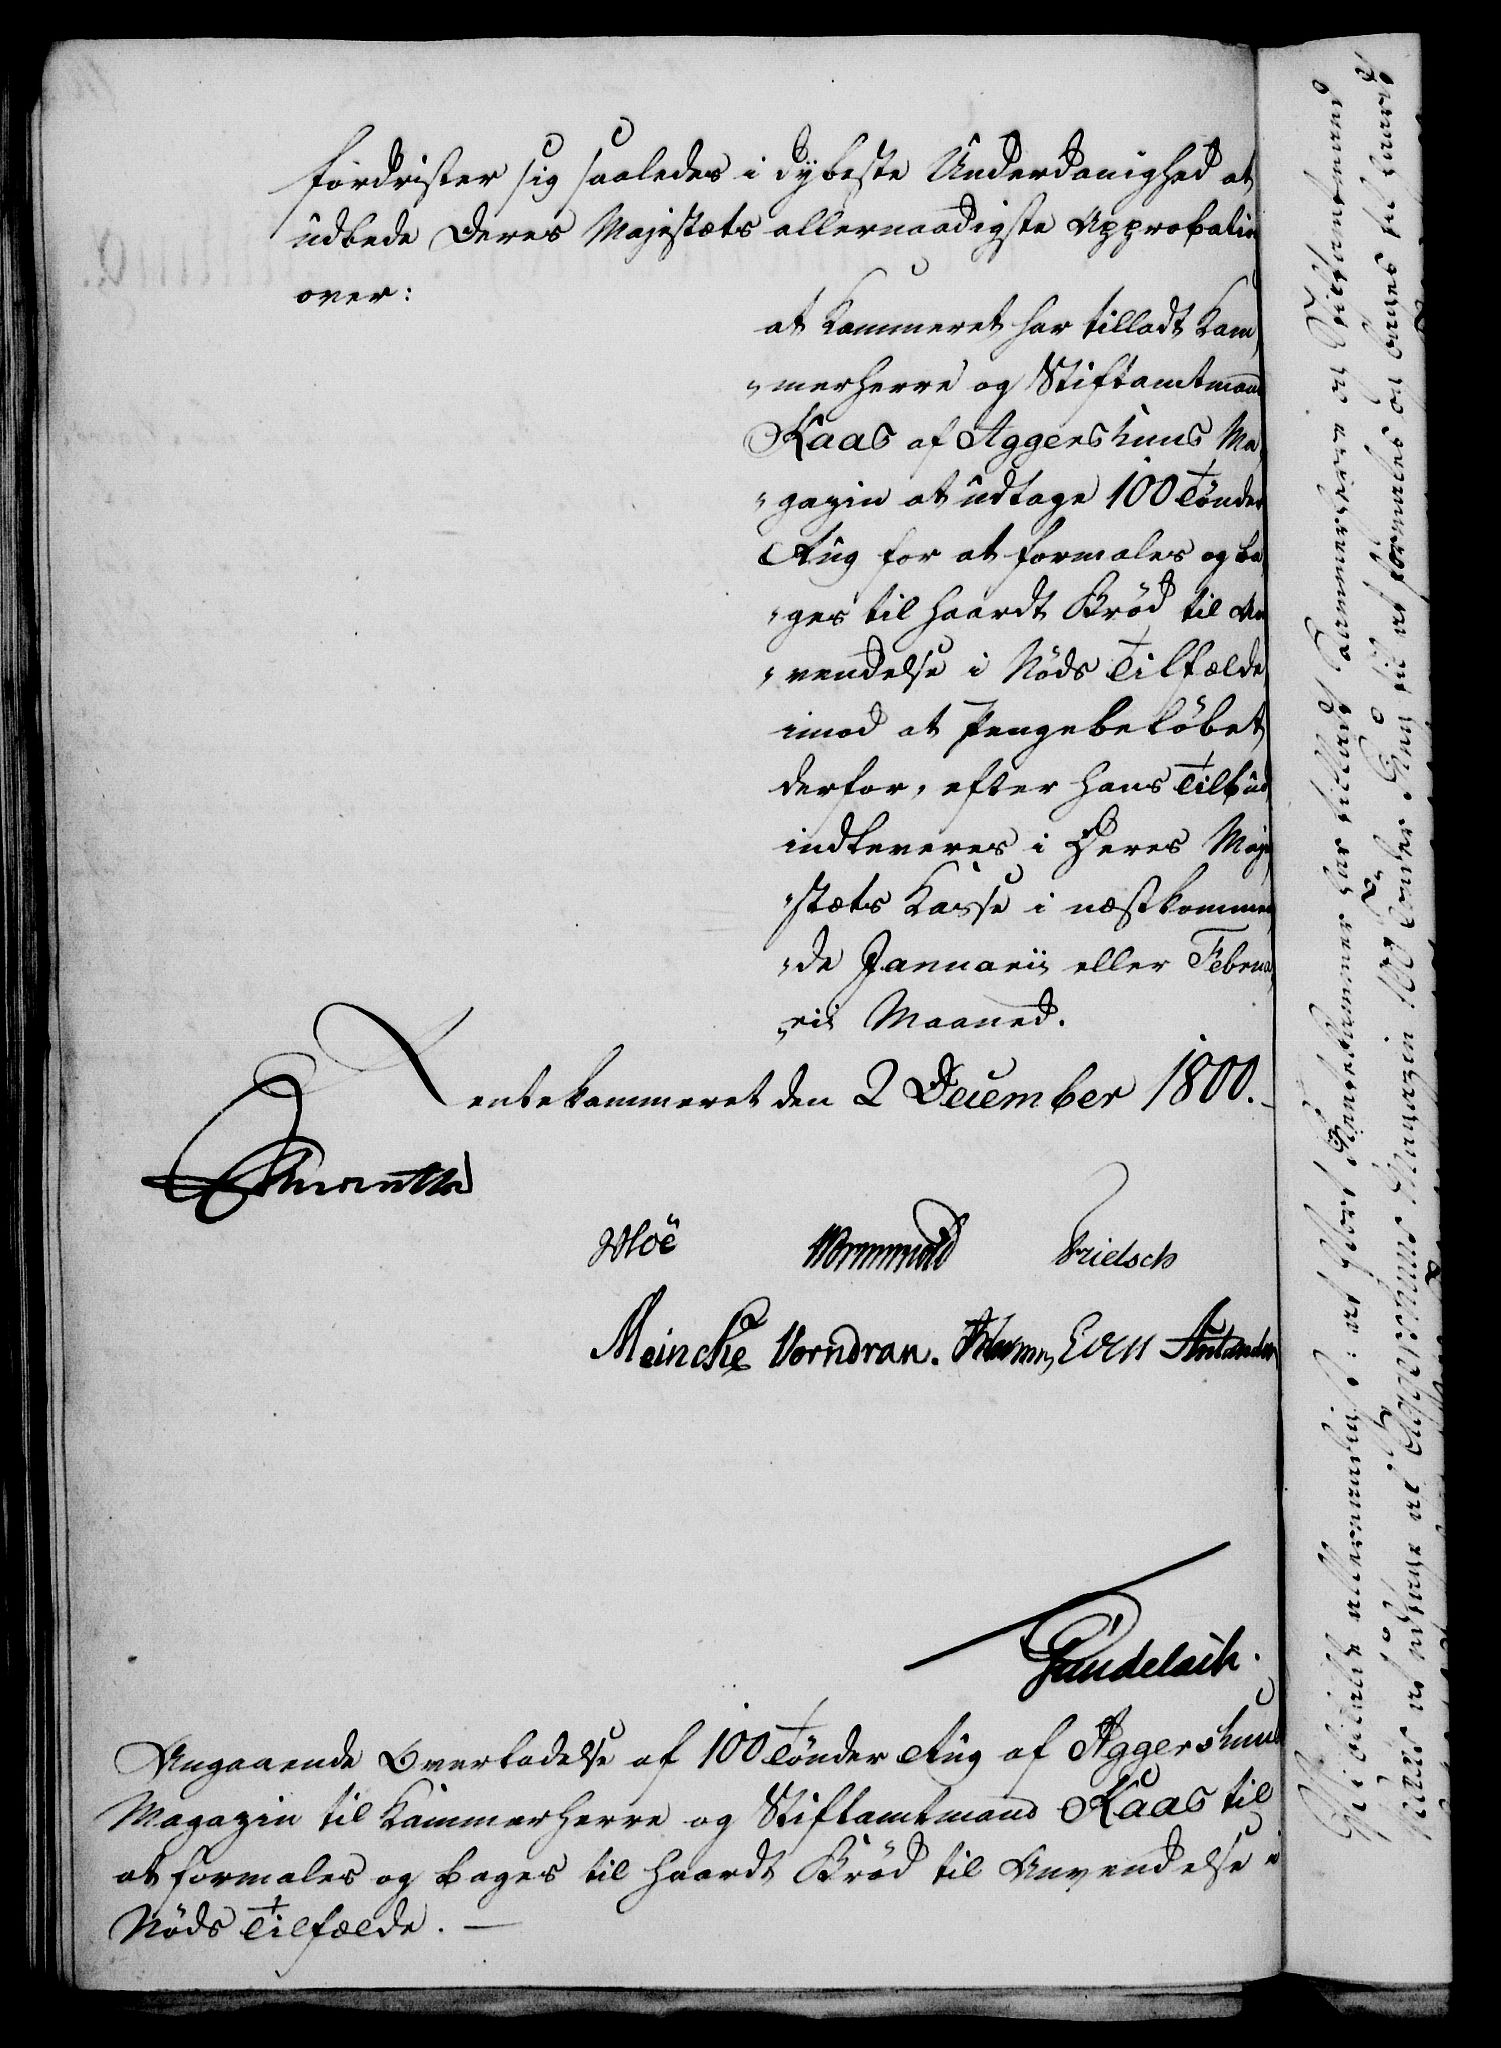 fordrister sig saaledes i dybeste Underdanighed at
udbede Deres Majestæts allernaadigste Approbation
over:
at Kammeret har tilladt Kam-
merherre og Stiftamtmand
Kaas af Aggershuus Ma-
gazin at udtage 100 Tönder
Rug for at formales og ba-
ges til haardt Bröd til An-
vendelse i Nöds Tilfælde,
imod at Pengebelöbet
derfor, efter hans Tilbud
indleveres i Deres Maje-
stæts Kasse i næstkommen-
de Januarii eller Februa-
rii Maaned.
Rentekammeret den 2 December 1800.
Moë Wormskiold Frielsch
Meincke Vorndran.
Angaaende Overladelse af 100 Tönder Rug af Aggershuus
Magazin til Kammerherre og Stiftamtmand Kaas til
at formales og bages til haardt Bröd til Anvendelse i
Nöds Tilfælde. —
Vi bifalde allernaadigst: at Vort Rentekammer har tilladt Kammerherre og Stiftamtmand
Kaas at udtage af Aggershuus Magazin 100 Tönder Rug til at formales og bages til haardt